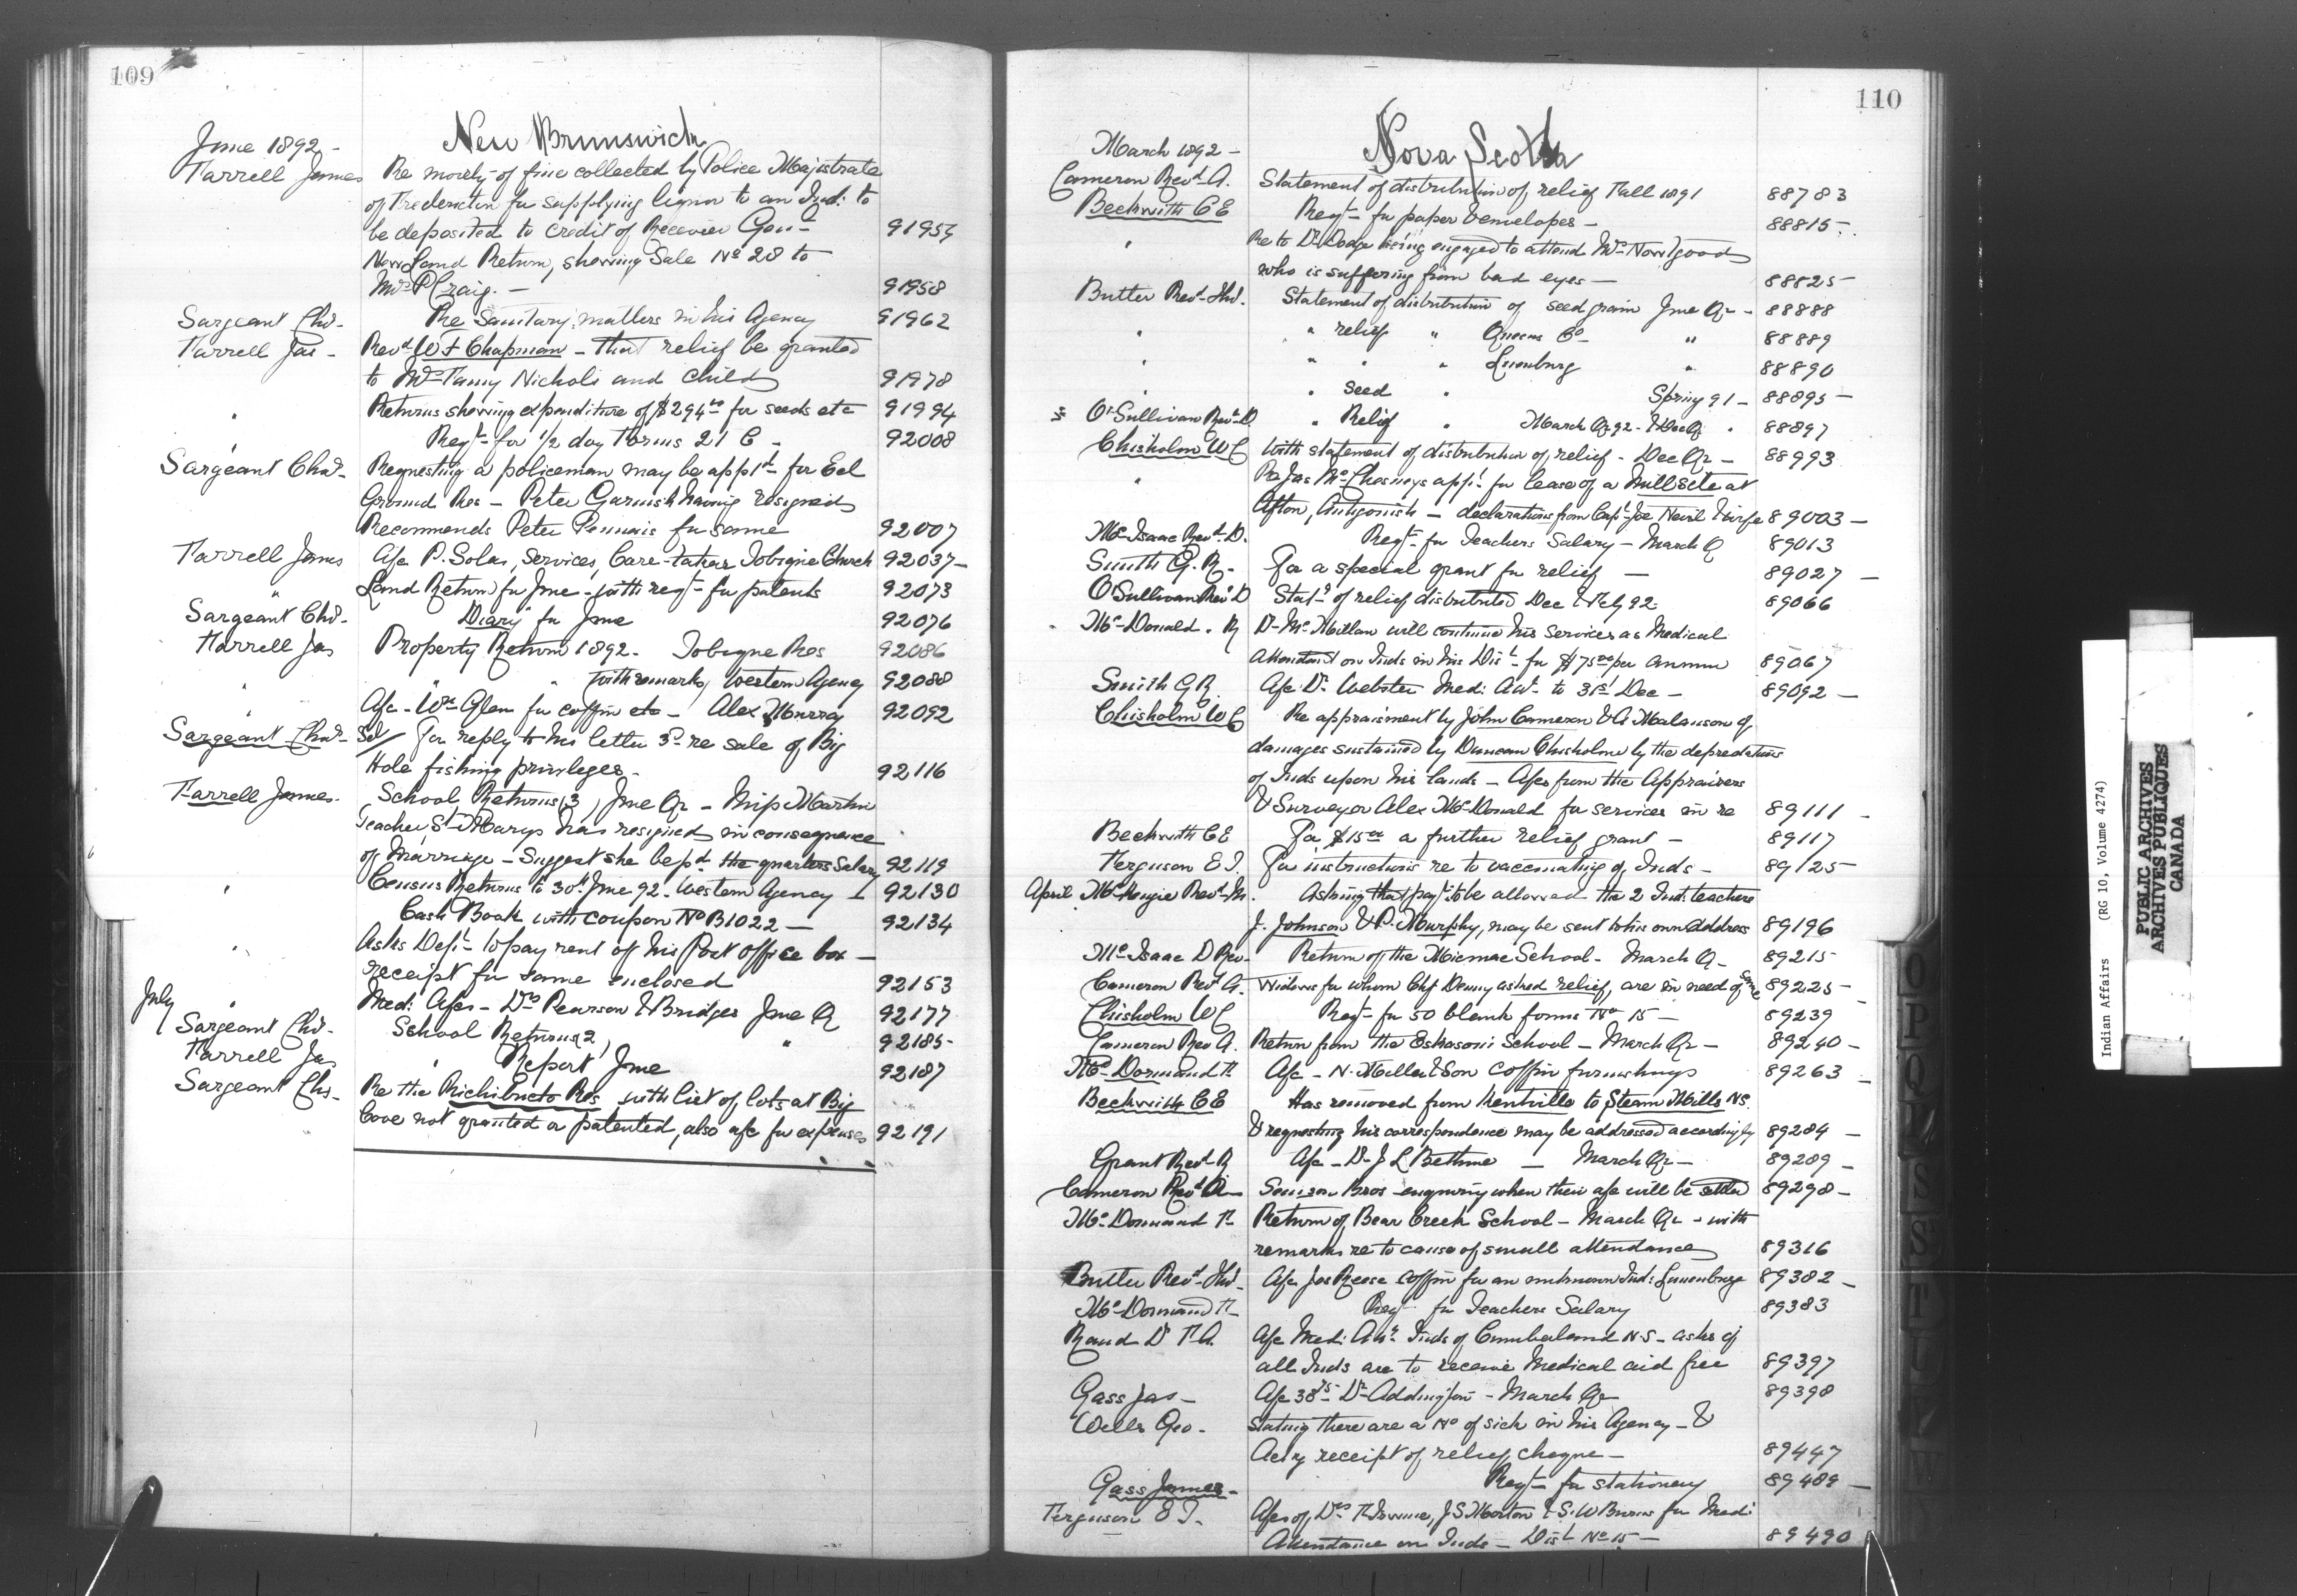 109
New Brunswick
June 1892 -
Farrell James Re moiety of fine collected by Police Majistrate
of Fredericton for supplying liquor to an Ind: to
be deposited to credit of Receiver Gen- 91957
New Land Return, showing Sale No 28 to
Mrs P Craig. - 91958
Sargeant Chs- Re Sanitary matters in his Agency 91962
Farrell Jas - Revd W F Chapman - that relief be granted
to Mrs Nichols and child 91978
" Returns showing expenditure of $294 for seeds etc 91994
" Reqt- for 1/2 doz Forms 21 C - 92008
Sargeant Chas- Requesting a policeman may be app'td for Eel
Ground Res - Peter having resigned
Recommends Peter for same 92007
Farrell James A/c P. Solas, Services, Care-taker Tobique Church 92037-
" Land Return for June - with reqt- for patents 92073
Sargeant Chs- Diary for June 92076
Farrell Jas Property Return 1892. Tobique Res 92086
" " " with remarks, Western Agency 92088
" A/c - Wm Glen for coffin etc - Alex Murray 92092
Sargeant Chas- For reply to his letter 3rd re sale of Big
Hole fishing privileges - 92116
Farrell James. School Returns (3) June Qr - Miss Martin
Teacher St Marys has resigned in consequence
of Marriage - Suggest she be pd the quarters Salary 92119
" Census Returns to 30th June 92 - Western Agency 92130
Cash Book with coupon No B1022 - 92134
" Asks Dept- to pay rent of his Post office box -
receipt for same enclosed 92153
July " Med: A/cs - Drs Pearson & Bridges June Q 92177
Sargeant Chs- School Returns (2) " 92185-
Farrell Jas " Report June 92187
Sargeant Chs- Re the Richibucto Res with list of lots at Big
Cove not granted or patented, also a/c for expenses 92191
110
Nova Scotia
March 1892 -
Cameron Revd A. Statement of distribution of relief Fall 1891 88783
Beckwith C E Reqt- for paper & envelopes - 88815-
" Re to Dr Dodge being engaged to attend Mrs
who is suffering from bad eyes - 88825-
Butler Revd Thos. Statement of distribution of seed grain June Qr - 88888
" " relief " Queens Co- " 88889
" " " " Lunenburg " 88890
" " Seed " Spring 91 - 88895-
O'Sullivan Revd D " Relief " March Qr 92 - & Dec Qr " 88897
Chisholm W C With statement of distribution of relief - Dec Qr - 88993
" Re Jas McChesneys app'n for lease of a Mill Site at
Afton, Antigonish - declarations from Capt Joe Nevil & wife 89003-
McIsaac Revd D. Reqt- for Teachers Salary - March Q 89013
Smith G. R. For a special grant for relief - 89027 -
O'Sullivan Revd D Stat't of relief distributed Dec & Feby 92 - 89066
McDonald. R Dr McMillan will continue his services as Medical
Attendant on Inds in his Dist- for $75 00 per annum 89067
Smith G R. A/c Dr Webster Med: Att- to 31st Dec - 89092 -
Chisholm W C Re appraisment by John Cameron & A Malanson of
damages sustained by Duncan Chisholm by the depredations
of Inds upon his lands - A/cs from the Appraisers
& Surveyor Alex McDonald for services in re 89111 -
Beckwith C E For $15 00 a further relief grant - 89117
Ferguson E J. For instructions re to vaccinating of Inds - 89125-
April McKenzie Revd M. Asking that payt to be allowed the 2 Ind: teachers
J. Johnson & P. Murphy, may be sent to his own address 89196
McIsaac D Rev- Return of the Micmac School - March Q - 89215-
Cameron Revd A. Widows for whom Chf Denny asked relief, are in need of same 89225-
Chisholm W C Reqt- for 50 blank forms No 15 - 89239
Cameron Rev A. Return from the Eskasoni School - March Qr - 89240 -
McDormand F A/c - N. Miller & Son coffin furnishings 89263 -
Beckwith C E Has removed from Kentville to Steam Mills NS.
& requesting his correspondence may be addressed accordingly 89284 -
Grant Revd R A/c - Dr J L Bethune - March Qr - 89289 -
Cameron Revd A- Bros - enquiring when their a/c will be settled 89298 -
McDormand F- Return of Bear Creek School - March Qr - with
remarks re to cause of small attendance 89316
Butler Revd Thos- A/c Jas Reese coffin for an unknown Ind: Lunenburg 89382 -
McDormand F- Reqt- for Teachers Salary 89383
Rand Dr F A. A/c Med: Att. Inds of Cumberland N.S - asks if
all Inds are to receive Medical aid free 89397
Gass Jas - A/c 38 75 - Dr Addington - March Qr 89398
Wells Geo. Stating there are a No of sick in his Agency - &
Ack'g receipt of relief cheque - 89447
Gass James - Reqt- for stationery 89489 -
Ferguson E J. A/cs of Drs J S Morton & S. W Burns for Med:
Attendance on Inds - Dist No 15 - 89490
O
P
Q
S
T
Indian Affairs (RG 10, Volume 4274)
PUBLIC ARCHIVES
ARCHIVES PUBLIQUES
CANADA